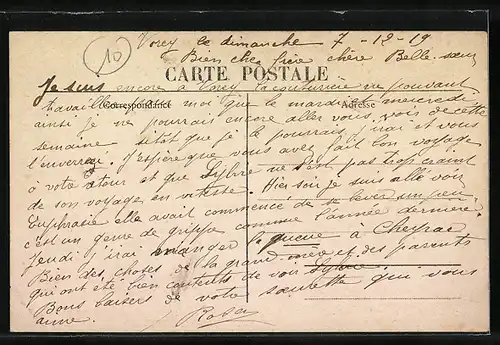 10
Vorey ce dimanche 7-12-19
Bien cher frère chère Belle-sœur
CARTE POSTALE
Correspondance
Adresse
Je suis encore à Vorey la couturière ne pouvant
travailler moi que le mardi mercredi
ainsi je ne pourrais encore aller vous voir de cette
semaine sitôt que je le pourrais j'irai et vous
l'enverrai. J'espère que vous avez fait bon voyage
à votre retour et que Sylvie ne s'est pas trop
de son voyage en vitesse. Hier soir je suis allé voir
Euphrasie elle avait commencé de se lever un peu
c'est un genre de grippe comme l'année dernière.
Jeudi j'irai manger la à Cheyrac
Bien des choses de la grand-mère et des parents
qui ont été bien contents de voir Sylvie.
Bons baisers de votre sœurette qui vous
aime.